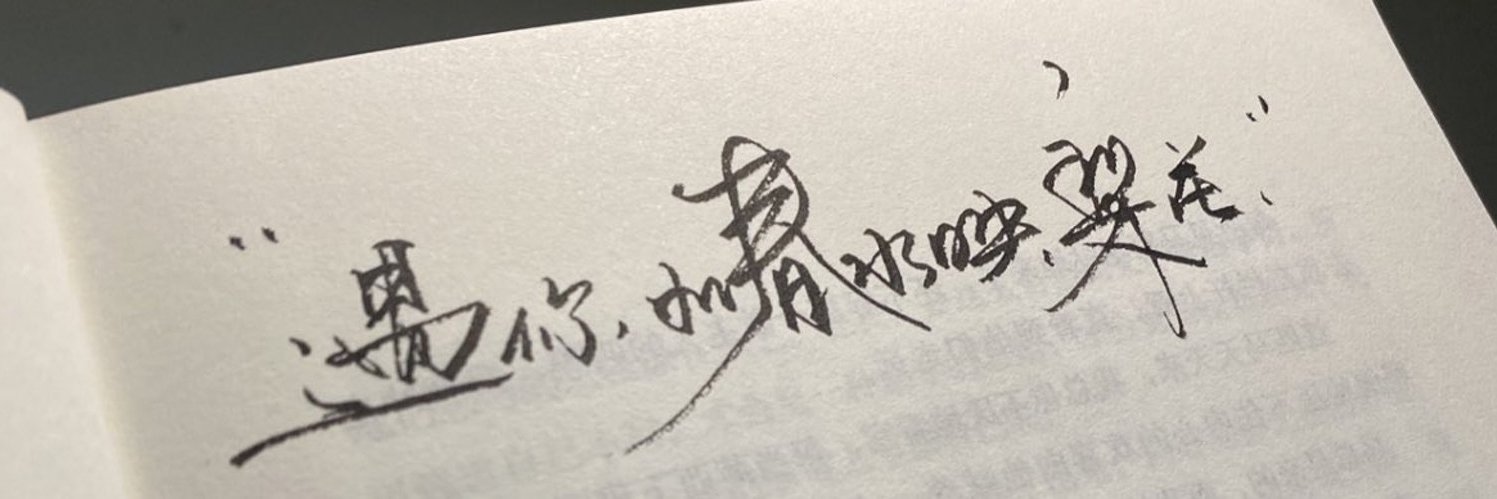 “遇你，如春水映梨花”